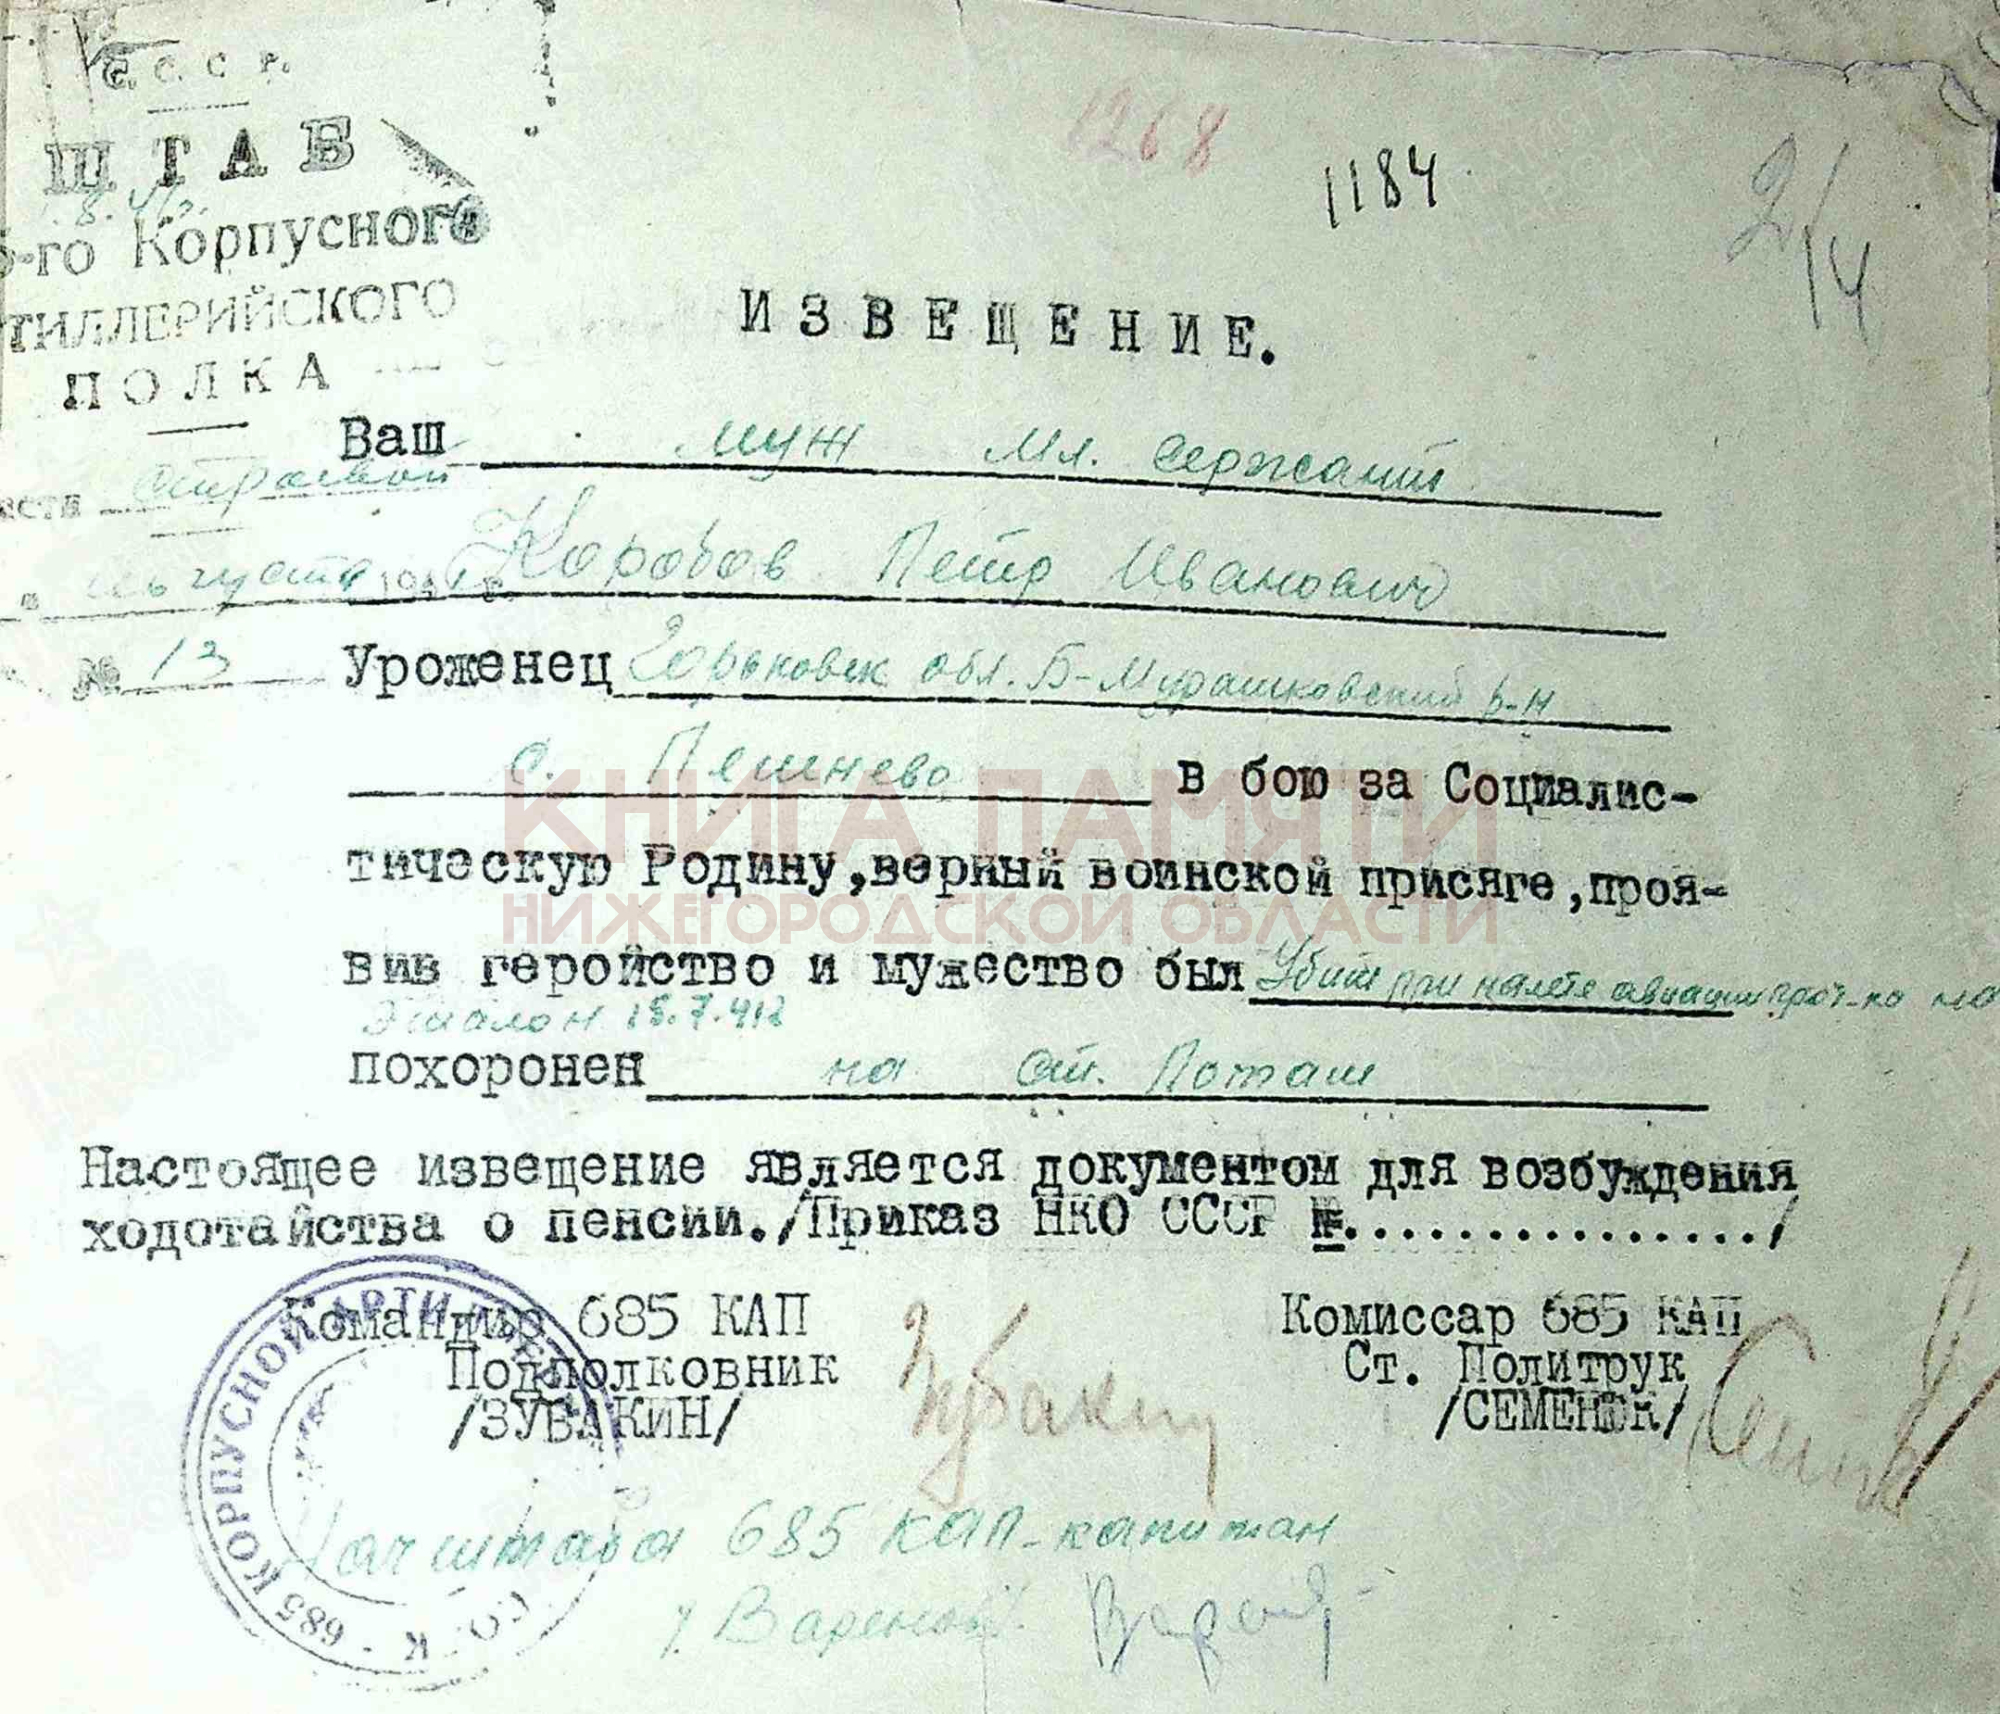 С. С. С. Р.
ШТАБ
-го Корпусного
ТИЛЛЕРИЙСКОГО
ПОЛКА
1268
1184
2/14
ИЗВЕЩЕНИЕ.
Ваш муж Мл. сержант
асти строевой
августа 194 г.
Коробов Петр Иванович
№ 13
Уроженец Горьковск обл. Б-Мурашковский р-н
с. Пешнево в бою за Социалис-
тическую Родину,верный воинской присяге,проя-
вив геройство и мужество был Убит при налете авиации прот-ка на
Эшалон 18.7.41г
похоронен на ст. Поташ
Настоящее извещение является документом для возбуждения
ходотайства о пенсии./Приказ НКО СССР №................/
Командир 685 КАП
Подполковник
/ЗУБАКИН/
Зубакин
Комиссар 685 КАП
Ст. Политрук
/СЕМЕНЮК/
Начштаба 685 КАП-капитан
/Вареной/
685 КОРПУСНОЙ АРТИЛ
КНИГА ПАМЯТИ
НИЖЕГОРОДСКОЙ ОБЛАСТИ